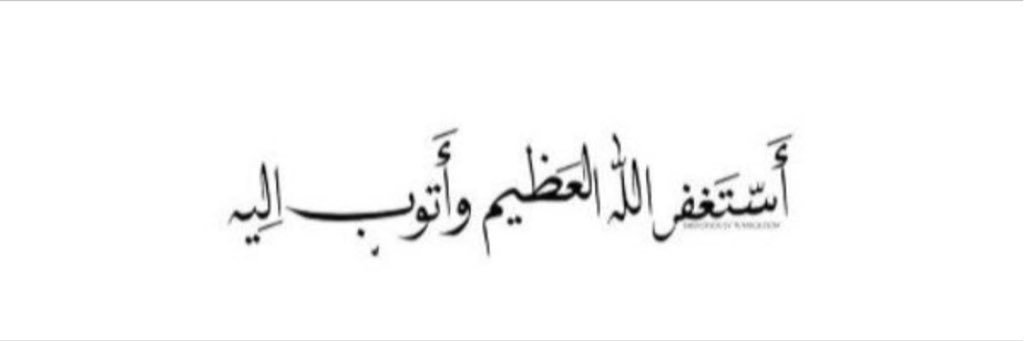 أَستَغفر اللّٰه العَظيم وأَتوب اليه